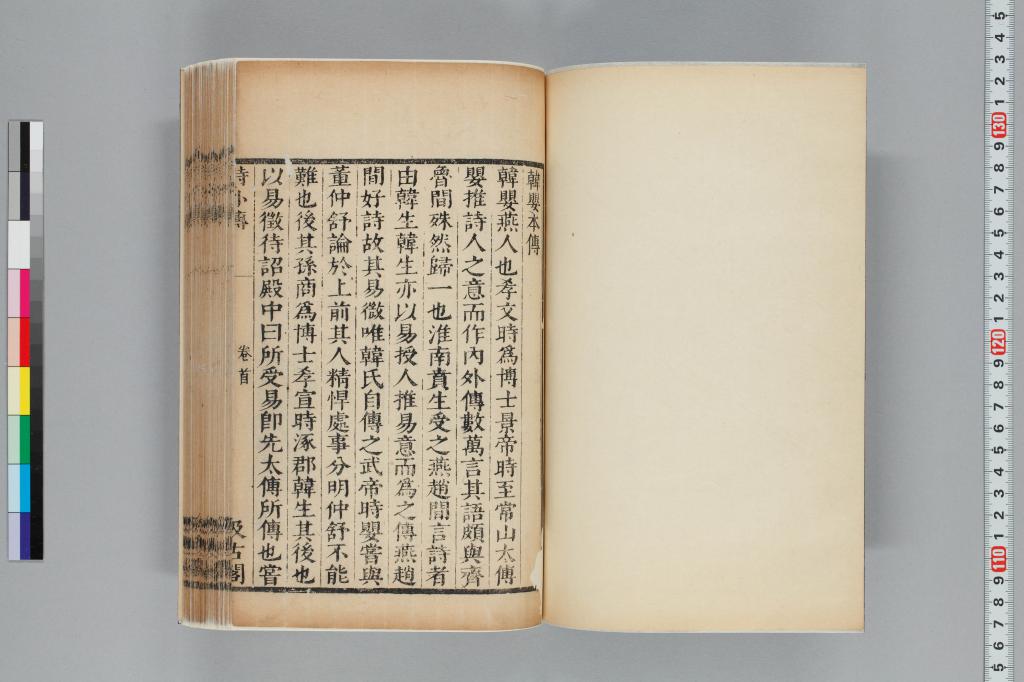 韓嬰本傳
韓嬰燕人也孝文時爲博士景帝時至常山太傳
嬰推詩人之意而作內外傳數萬言其語頗與齊
魯間殊然歸一也淮南賁生受之燕趙間言詩者
由韓生韓生亦以易授人推易意而爲之傳燕趙
間好詩故其易微唯韓氏自傳之武帝時嬰嘗與
董仲舒論於上前其人精悍處事分明仲舒不能
難也後其孫商爲博士孝宣時涿郡韓生其後也
以易徵待詔殿中曰所受易卽先太傳所傳也嘗
詩外傳 卷首 汲古閣
5
4
3
2
1
130
9
8
7
6
5
4
3
2
1
120
9
8
7
6
5
4
3
2
1
110
9
8
7
6
5